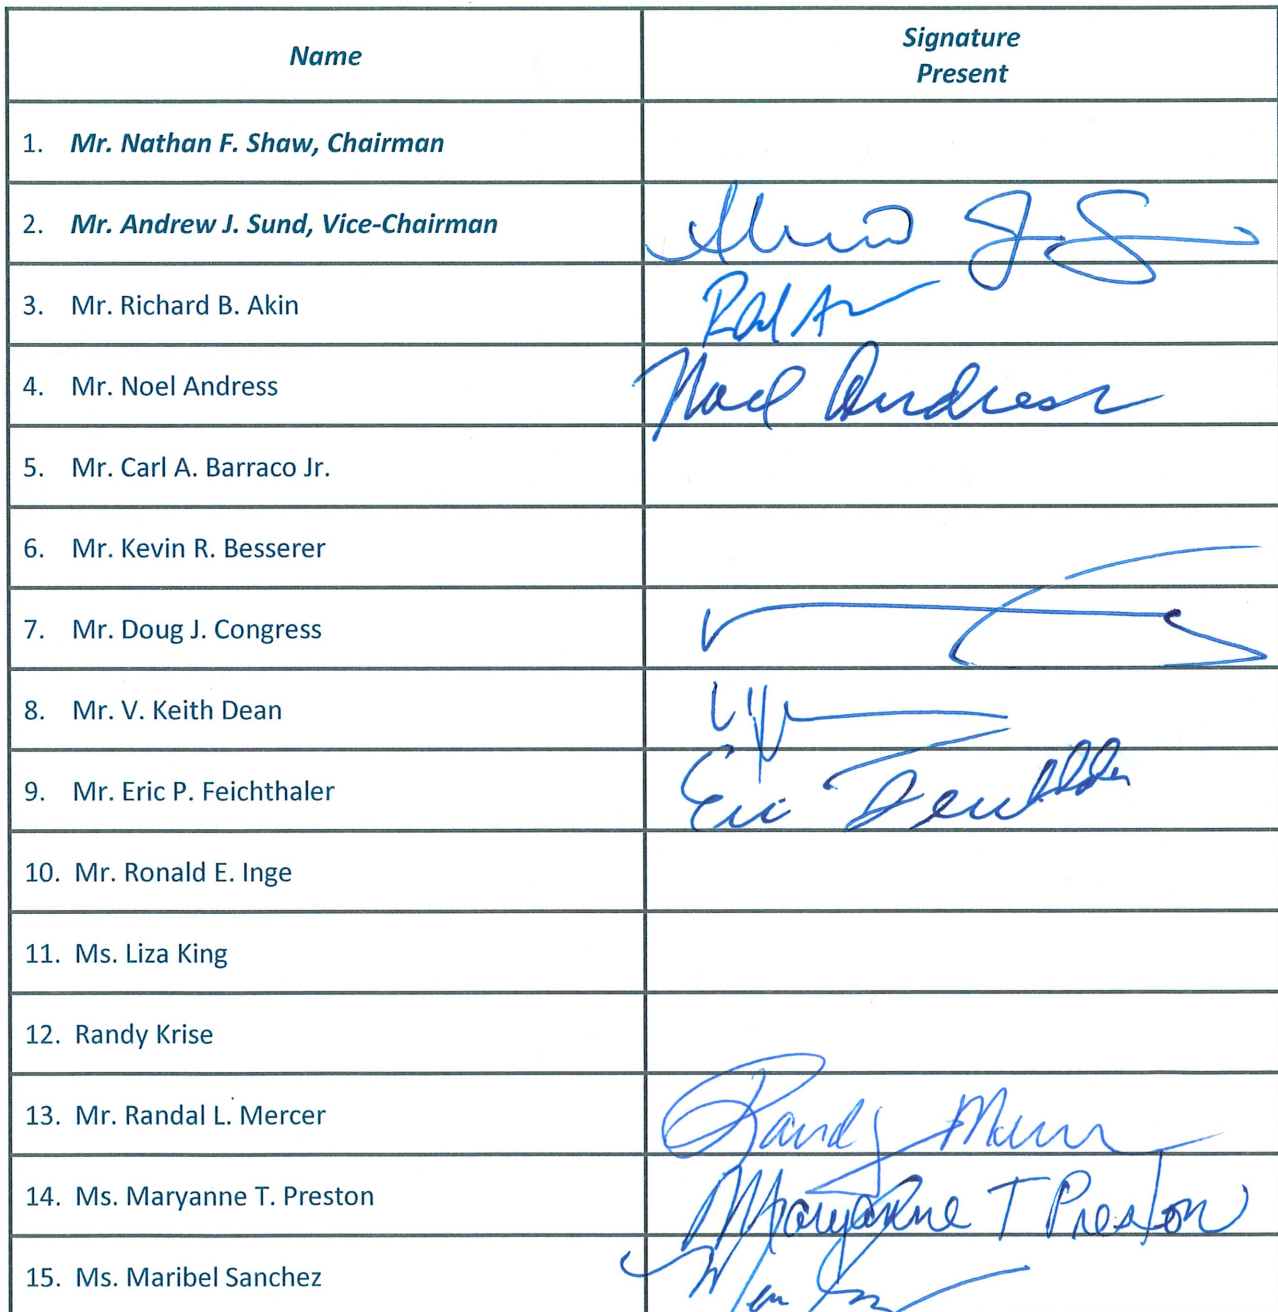 Name
Signature
Present
1. Mr. Nathan F. Shaw, Chairman
2. Mr. Andrew J. Sund, Vice-Chairman
3. Mr. Richard B. Akin
4. Mr. Noel Andress Noel Andress
5. Mr. Carl A. Barraco Jr.
6. Mr. Kevin R. Besserer
7. Mr. Doug J. Congress
8. Mr. V. Keith Dean
9. Mr. Eric P. Feichthaler Eric
10. Mr. Ronald E. Inge
11. Ms. Liza King
12. Randy Krise
13. Mr. Randal L. Mercer Randy
14. Ms. Maryanne T. Preston Maryanne T Preston
15. Ms. Maribel Sanchez